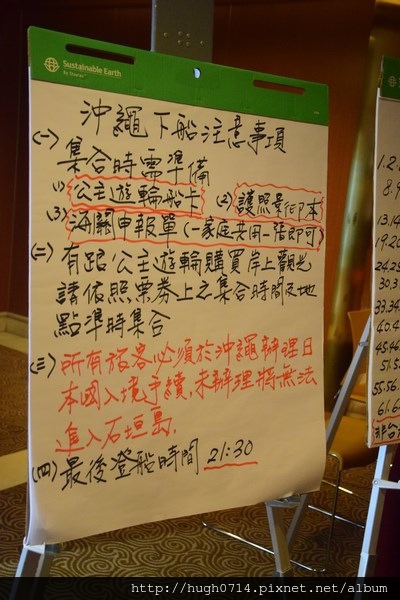 Sustainable Earth
by Staples
沖繩下船注意事項
(一) 集合時需準備
1) 公主遊輪船卡 (2) 護照景印本
3) 海關申報單 (一家庭共用一張即可)
(二) 有跟公主遊輪購買岸上觀光
請依照票券上之集合時間及地
點準時集合
(三) 所有旅客必須於沖繩辦理日
本國入境手續,未辦理將無法
進入石垣島.
(四) 最後登船時間 21:30
1.2
8.9
13.14
19.20
30.3
33.34
40.4
51.5
55.56
61.6
http://hugh0714.pixnet.net/album